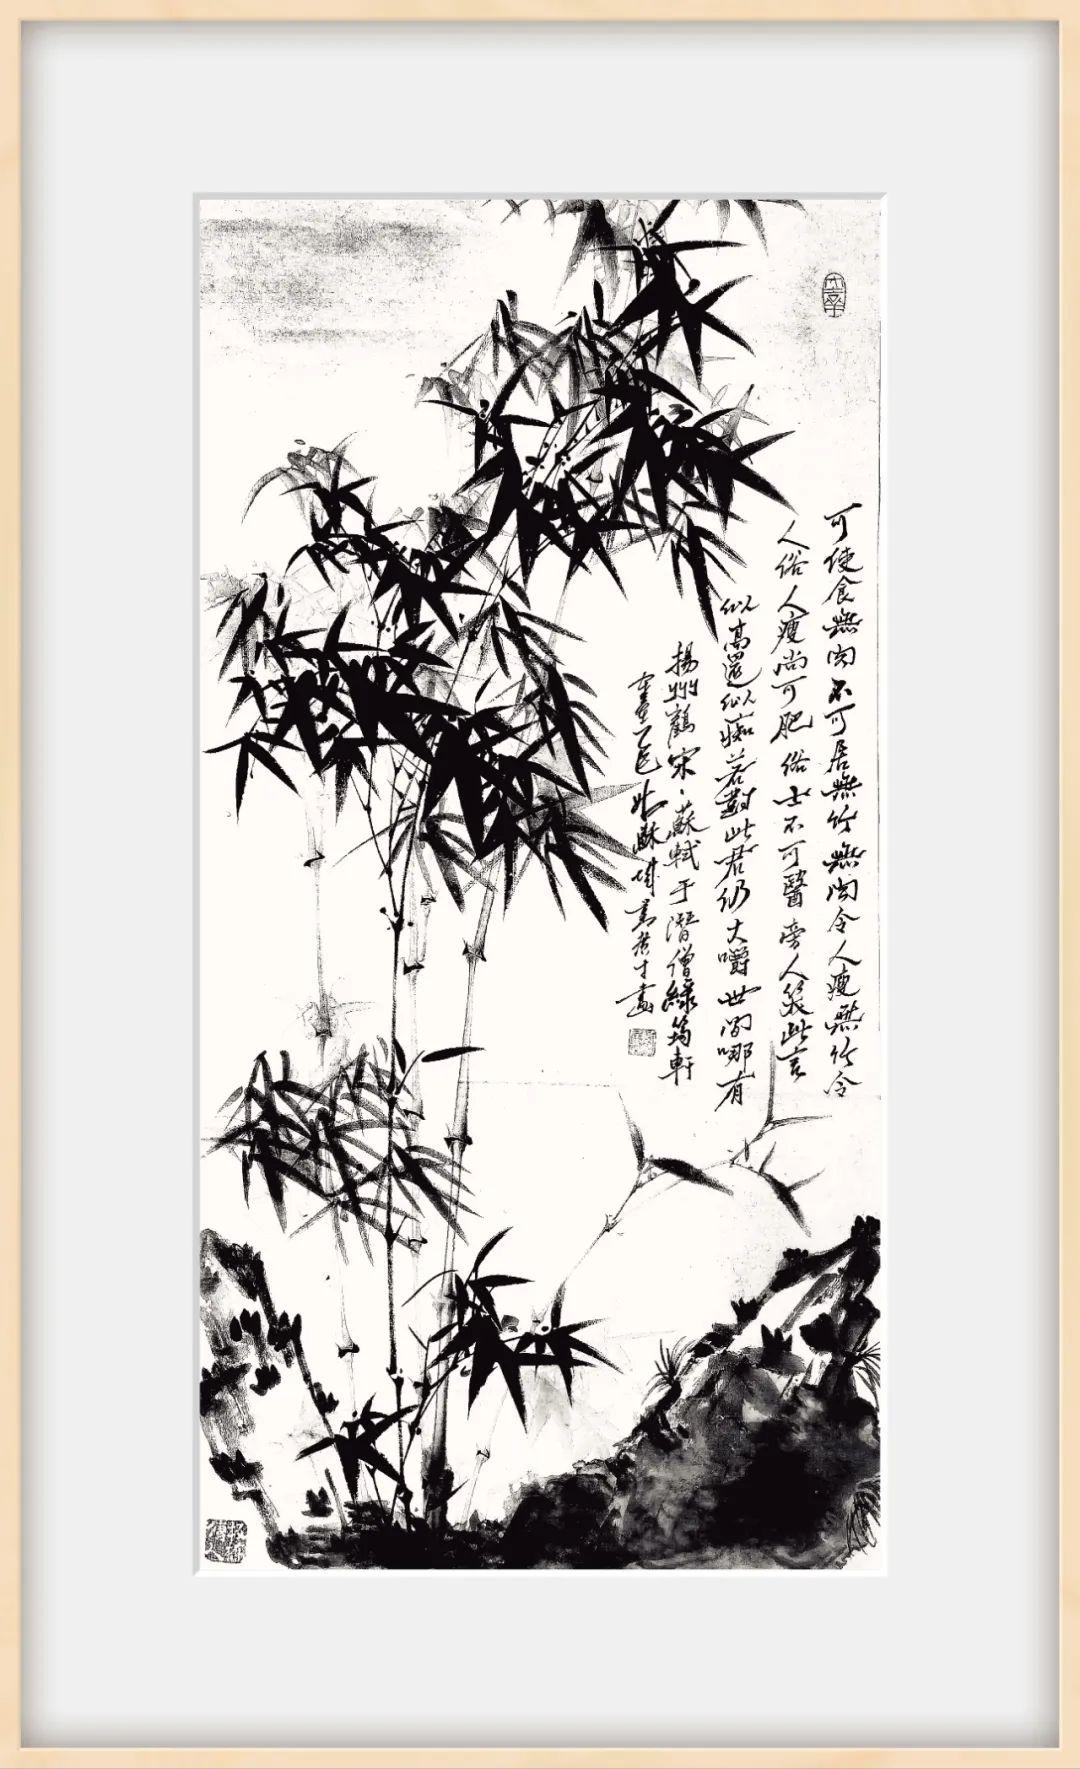 可使食無肉不可居無竹無肉令人瘦無竹令
人俗人瘦尚可肥俗士不可醫旁人笑此言
似高還似痴若對此君仍大嚼世間哪有
揚州鶴宋·蘇軾于潛僧綠筠軒